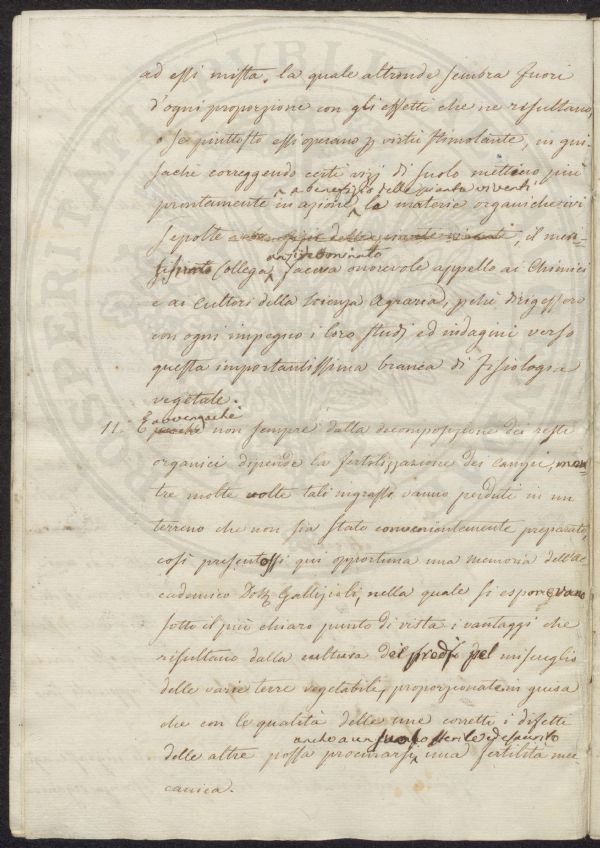 ad essi mista, la quale altronde sembra fuori
d'ogni proporzione con gli effetti che ne risultano,
o se piuttosto essi operano p virtù stimolante, in gui-
sachè correggendo certi vizj di suolo mettino più
a benefizio delle piante viventi
prontamente in azione le materie organiche ivi
sepolte a benefizio delle piante viventi, il men-
anzidettominato
Collega faceva morevole appello ai Chimici
e ai Cultori della scienza Agraria, pchè dirigessero
con ogni impegno i loro studj ed indagini verso
questa importantissima branca di fisiologia
vegetale.
avvengachè
11. E perchè non sempre dalla decomposizione dei resti
organici dipende la fertilizzazione dei campi, men-
tre molte volte tali ingrassi vanno perduti in un
terreno che non sia stato convenientemente preparato,
così presentossi qui opportuna una memoria dell'Ac-
cademico Dott. Gallizioli, nella quale si esponevano
sotto il più chiaro punto di vista i vantaggi che
risultano dalla cultura del miscuglio
delle varie terre vegetabili, proporzionate in guisa
che con le qualità delle une corretti i difetti
anche a un suolo sterile ed esaurito
delle altre possa procurarsi una fertilità mec-
canica.